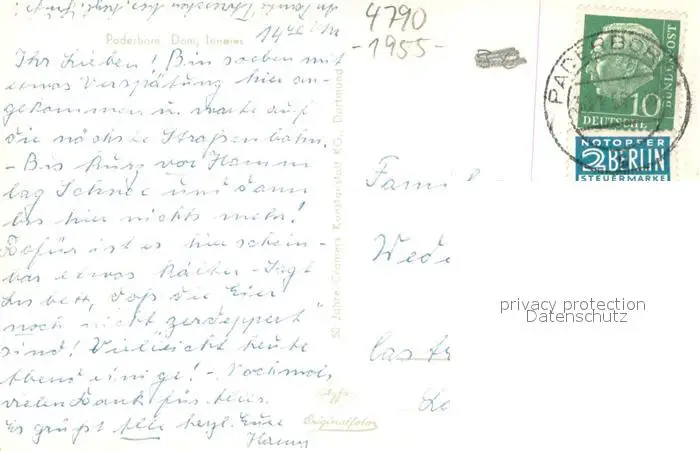 4790
-1955-
Paderborn Dom, Inneres
Ihr Lieben! Bin soeben mit
etwas Verspätung hier an-
gekommen u. warte auf
die nächste Straßenbahn.
- Bis kurz vor Hamm
lag Schnee und dann
bis hier nichts mehr!
Dafür ist es hier schein-
bar etwas kälter - Sagt
daß die Eier
noch nicht zerdeppert
sind! Vielleicht heute
Abend einige! - Nochmals
vielen Dank für alles.
Es grüßt alle herzl. Eure
50 Jahre Cramers Kunstanstalt KG., Dortmund
Originalfoto
PADERBORN
10
DEUTSCHE
BUNDESPOST
NOTOPFER
2 BERLIN
STEUERMARKE
Famil
Wede
privacy protection
Datenschutz